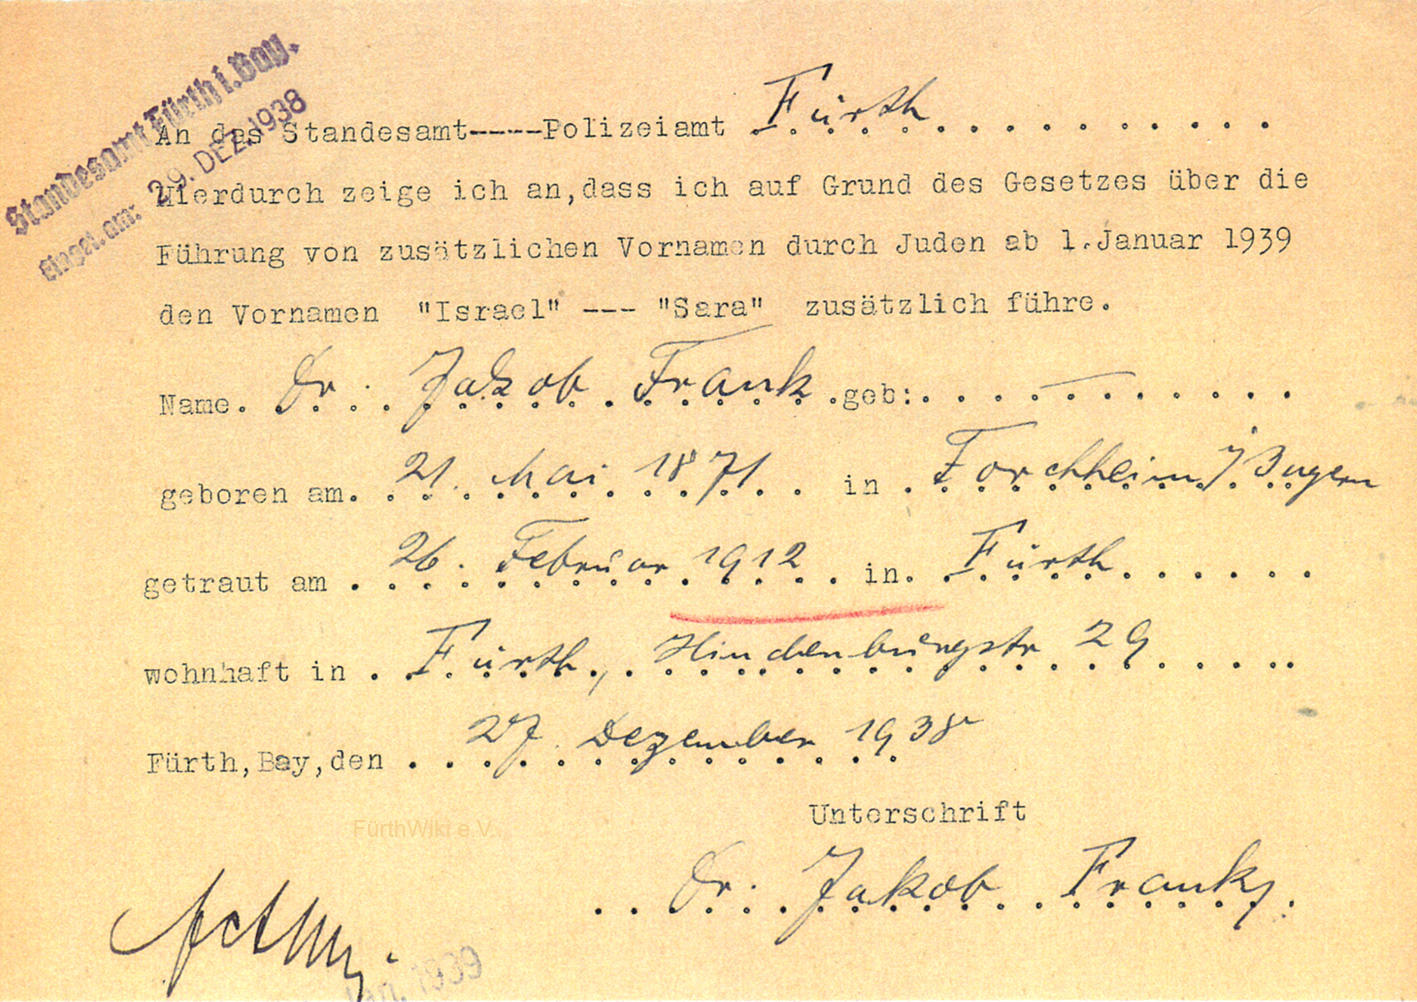 Standesamt Fürth i. Bay.
Einget. am: 29. DEZ. 1938
An das Standesamt-----Polizeiamt Fürth
Hierdurch zeige ich an, dass ich auf Grund des Gesetzes über die
Führung von zusätzlichen Vornamen durch Juden ab 1. Januar 1939
den Vornamen "Israel" --- "Sara" zusätzlich führe.
Name. Dr. Jakob Frank geb: —
geboren am. 21. Mai 1871 in Forchheim / Bayern
getraut am 26. Februar 1912 in. Fürth
wohnhaft in Fürth, Hindenburgstr 29
Fürth, Bay, den 27. Dezember 1938
Unterschrift
FürthWiki e.V.
Dr. Jakob Frank
1939